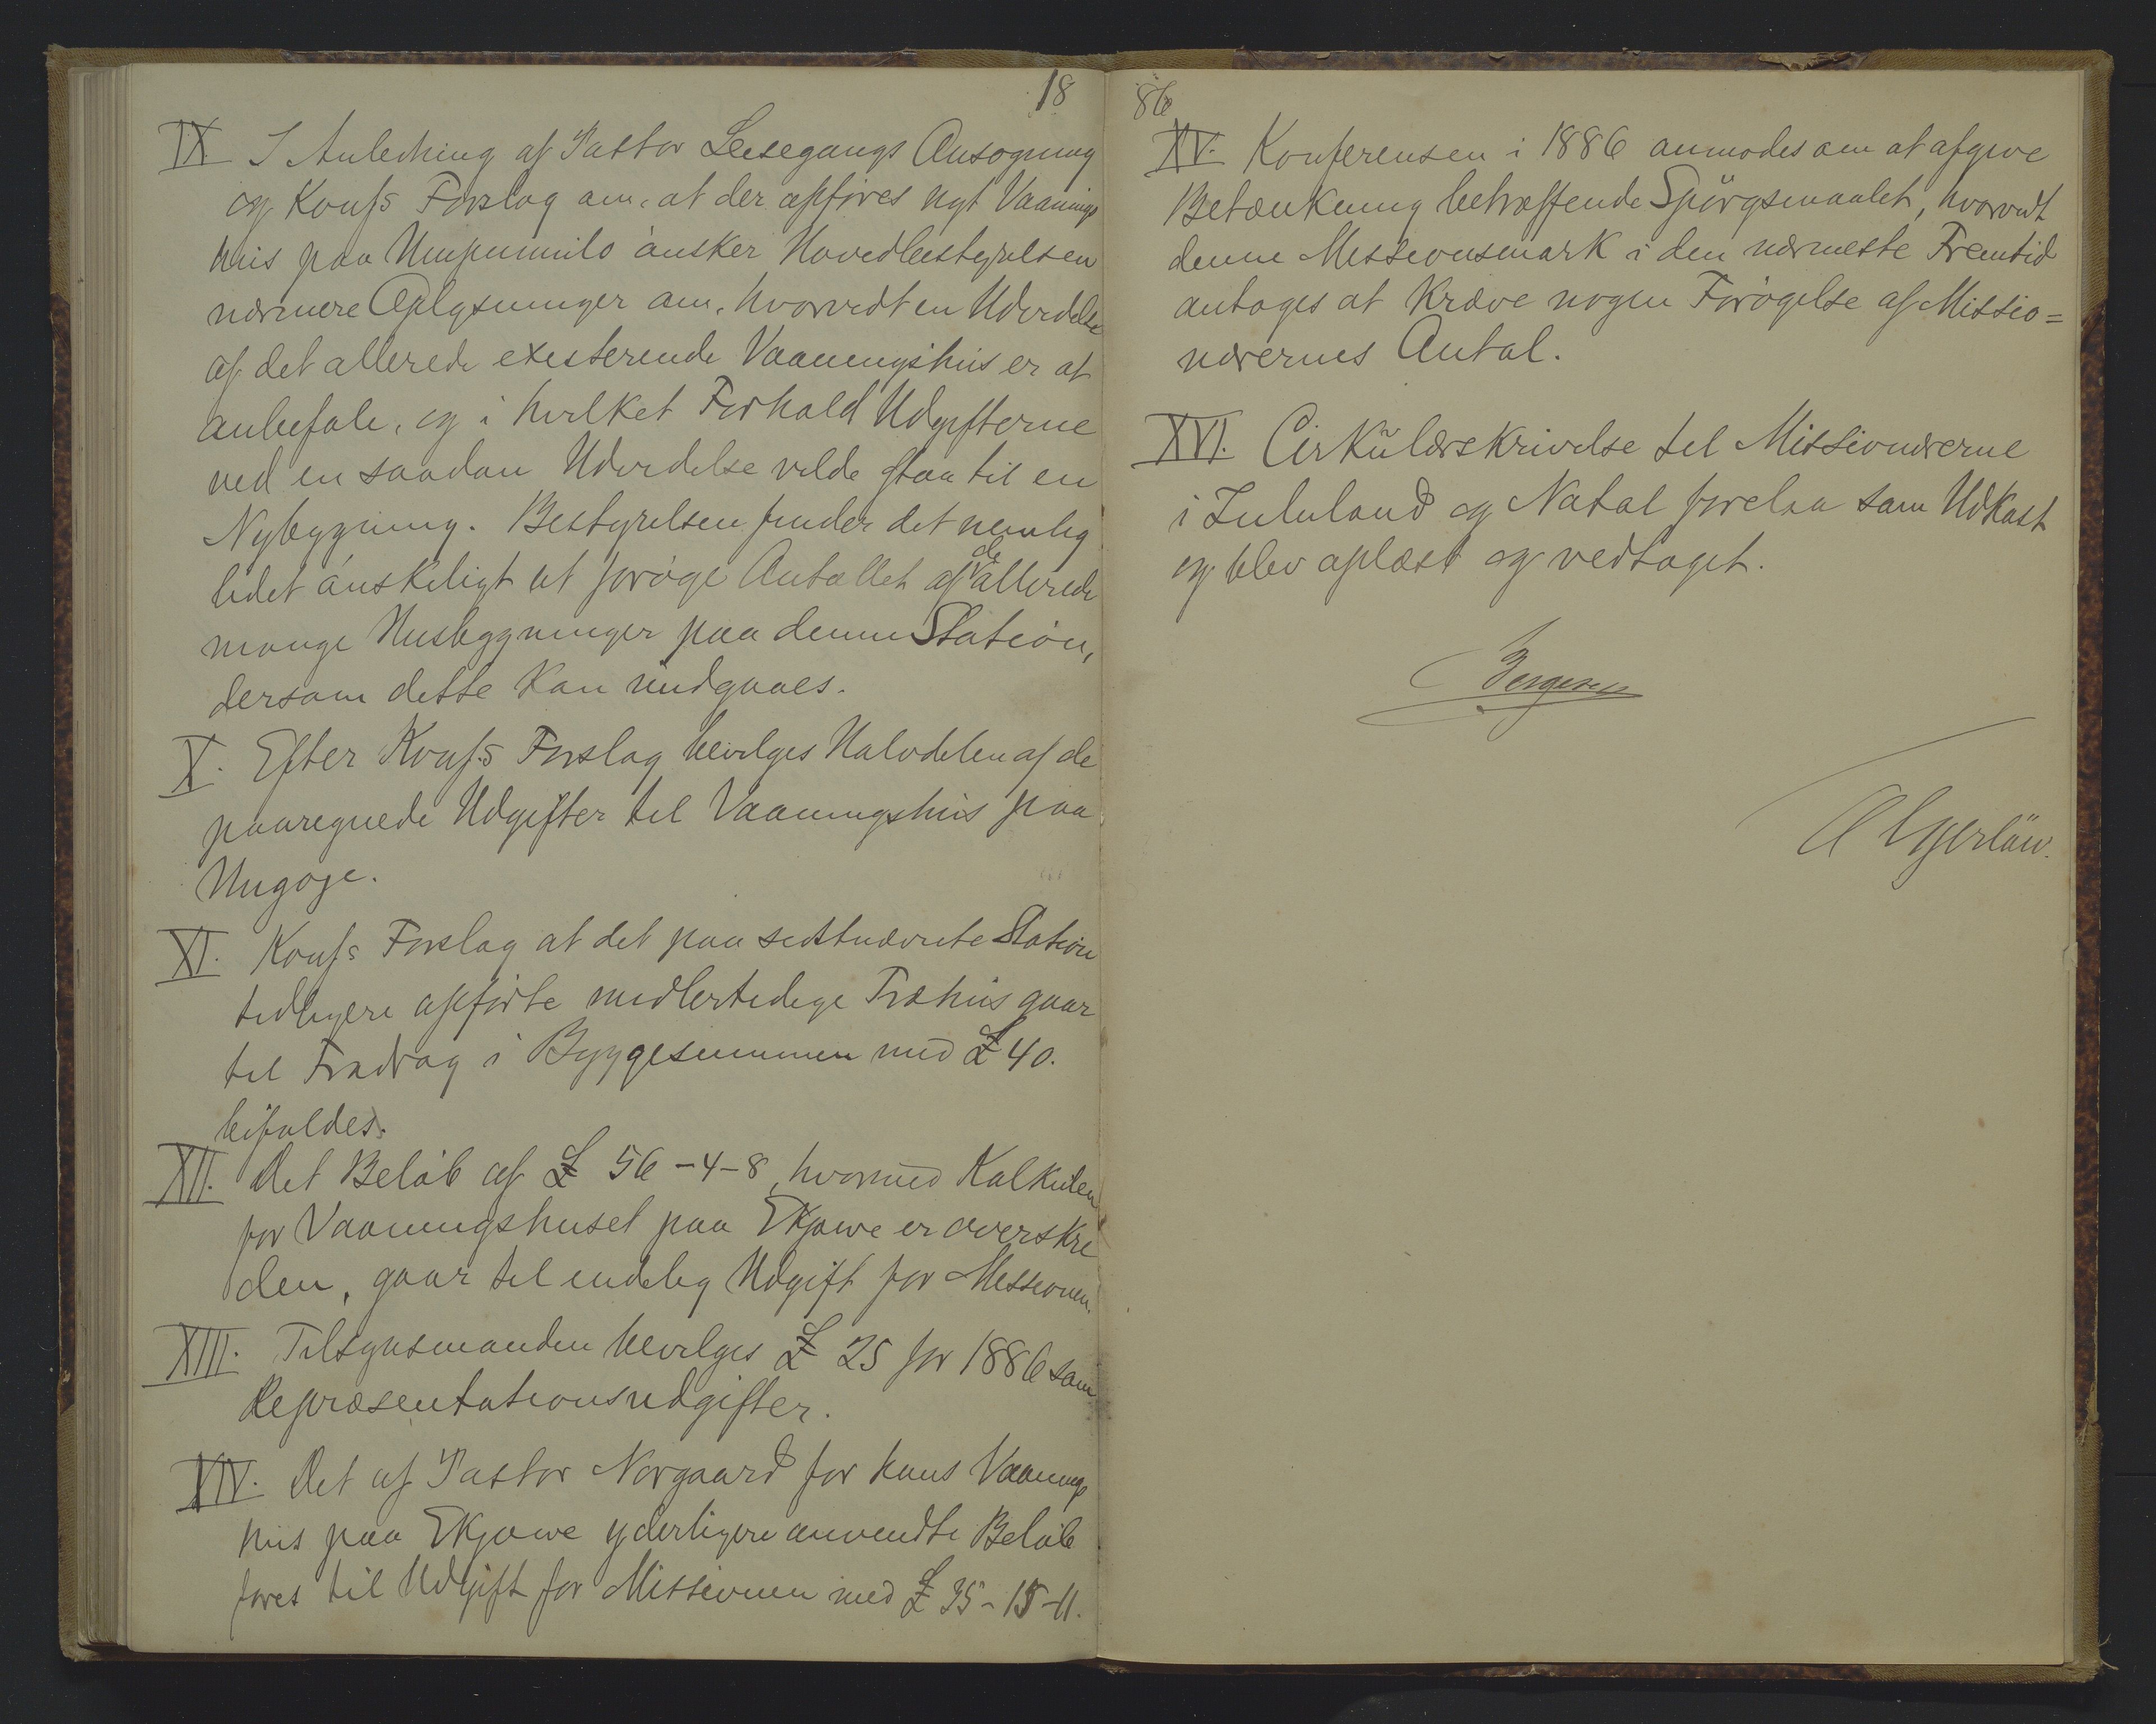 18
IX I Anledning af Pastor Leisegangs Ansøgning
og Konfs Forslag om, at der opføres nyt Vaanings
hus paa Umpumulo ønsker Hovedbestyrelsen
nærmere Oplysninger om, hvorvidt en Udvidelse
af det allerede existerende Vaaningshus er at
anbefale, og i hvilket Forhold Udgifterne
ved en saadan Udvidelse vilde staa til en
Nybygning. Bestyrelsen finder det nemlig
lidet ønskeligt at forøge Antallet af de allerede
mange Husbygninger paa denne Station,
dersom dette kan undgaaes.
X. Efter Konfs Forslag bevilges Halvdelen af de
paaregnede Udgifter til Vaaningshus paa
Ungoye.
XI. Konfs Forslag at det paa sidstnævnte Station
tidligere opførte midlertidige Træhus gaar
til Fradrag i Byggesummen med £ 40.
bifaldes.
XII. Det Beløb af £ 56-4-8, hvormed Kalkulen
for Vaaningshuset paa Ekjowe er overskre
den, gaar til endelig Udgift for Missionen.
XIII. Tilsynsmanden bevilges £ 25 for 1886 som
Repræsentationsudgifter.
XIV. Det af Pastor Norgaard for hans Vaanings
hus paa Ekjowe yderligere anvendte Beløb
føres til Udgift for Missionen med £ 35-15-11.
86
XV. Konferensen i 1886 anmodes om at afgive
Betænkning betræffende Spörgsmaalet, hvorvidt
denne Missionsmark i den nærmeste Fremtid
antages at kræve nogen Forøgelse af Missio=
nærernes Antal.
XVI. Cirkulærskrivelse til Missionærerne
i Zululand og Natal forelaa som Udkast
og blev oplæst og vedtaget.
Borgesen